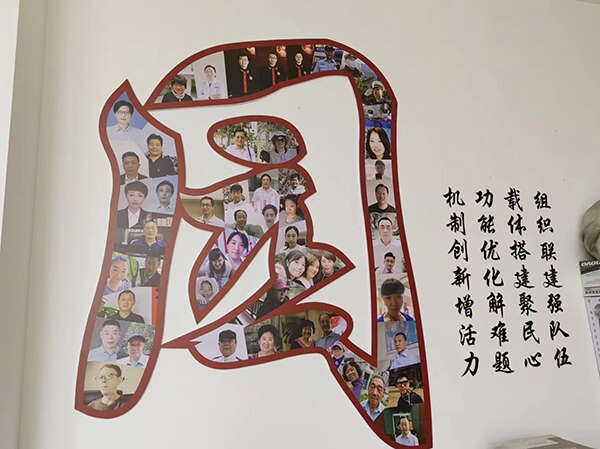 组织联建强队伍
载体搭建聚民心
功能优化解难题
机制创新增活力